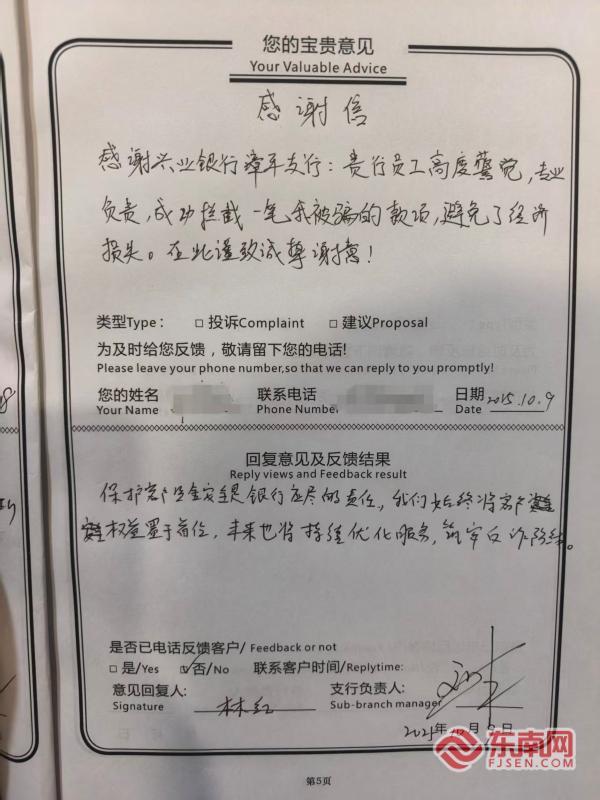 您的宝贵意见
Your Valuable Advice
感谢信
感谢兴业银行漳平支行：贵行员工高度警觉，专业
负责，成功拦截一笔我被骗的款项，避免了经济
损失。在此谨致诚挚谢意！
类型Type： □ 投诉Complaint □ 建议Proposal
为及时给您反馈，敬请留下您的电话!
Please leave your phone number,so that we can reply to you promptly!
您的姓名 联系电话 日期
Your Name Phone Number Date 2025.10.9
回复意见及反馈结果
Reply views and Feedback result
保护客户资金安全是银行应尽的责任，我们始终将客户
权益置于首位，未来也将持续优化服务，筑牢反诈防线。
是否已电话反馈客户/ Feedback or not
□ 是/Yes ☑否/No 联系客户时间/Replytime:
意见回复人: 支行负责人:
Signature 林红 Sub-branch manager
2025年10月9日
东南网
FJSEN.COM
第5页